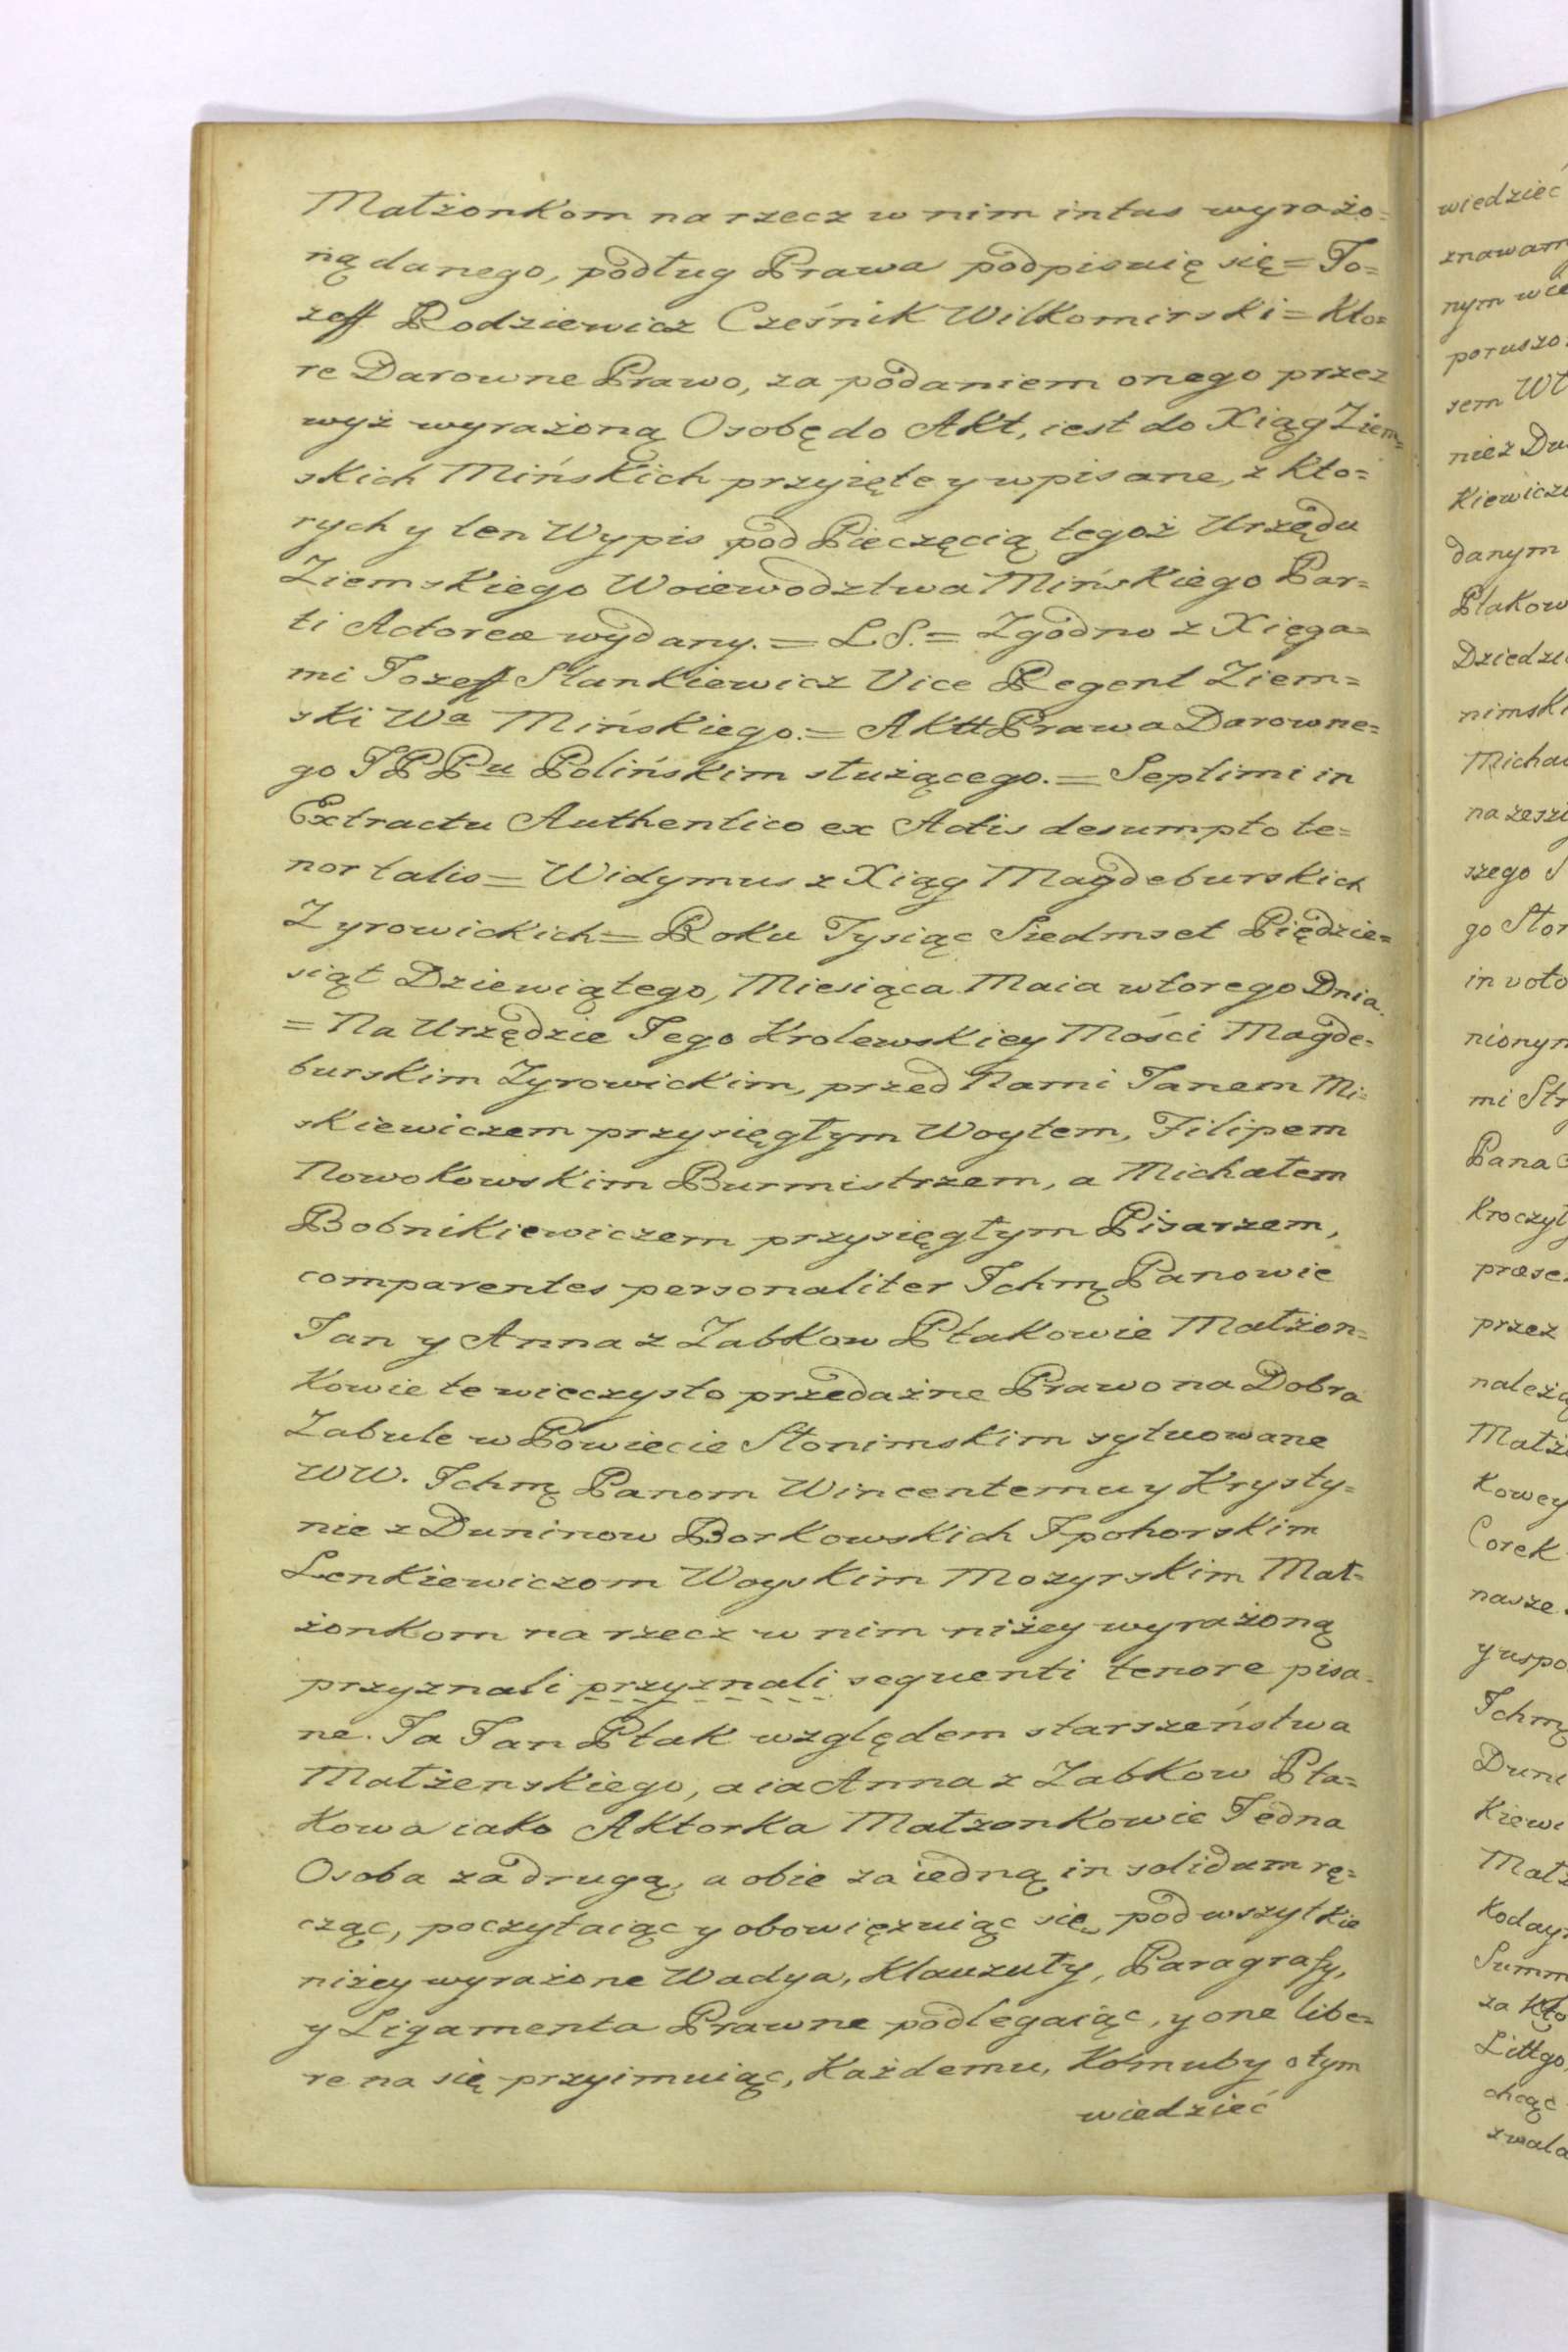 Małżonkom na rzecz w nim intus wyrażo=
ną danego, podług Prawa podpisuię się = Jo=
zeff Rodziewicz Cześnik Wiłkomirski = Kto=
re Darowne Prawo, za podaniem onego przez
wyż wyrażoną Osobę do Akt, iest do Xiąg Ziem=
skich Mińskich przyięte y wpisane, z kto=
rych y ten Wypis pod Pieczęcią tegoż Urzędu
Ziemskiego Woiewodztwa Mińskiego Par=
ti Actoreæ wydany. = L.S. = Zgodno z Xięga=
mi Jozeff Stankiewicz Vice Regent Ziem=
ski Wa Mińskiego. = Aktt Prawa Darowne=
go JPPu Polińskim służącego. = Septimi in
Extractu Authentico ex Actis desumpto te=
nor talis = Widymus z Xiąg Magdeburskich
Zyrowickich = Roku Tysiąc Siedmset Piędzie=
siąt Dziewiątego, Miesiąca Maia wtorego Dnia.
= Na Urzędzie Jego Krolewskiey Mości Magde=
burskim Zyrowickim, przed Nami Janem Mi=
skiewiczem przysięgłym Woytem, Filipem
Nowokowskim Burmistrzem, a Michałem
Bobnikiewiczem przysięgłym Pisarzem,
comparentes personaliter Ichmę Panowie
Jan y Anna z Zabkow Ptakowie Małżon=
kowie te wieczysto przedażne Prawo na Dobra
Zabule w Powiecie Słonimskim sytuowane
WW. Ichmę Panom Wincentemu y Krysty=
nie z Duninow Borkowskich Ipohorskim
Lenkiewiczom Woyskim Mozyrskim Mał=
żonkom na rzecz w nim niżey wyrażoną
przyznali przyznali sequenti tenore pisa=
ne. Ja Jan Ptak względem starszeństwa
Małżenskiego, a ia Anna z Zabkow Pta=
kowa iako Aktorka Małzonkowie Jedna
Osoba za drugą, a obie za iedną in solidum rę=
cząc, poczytaiąc y obowięzuiąc się pod wszytkie
niżey wyrażone Wadya, Klauzuły, Paragrafy,
y Ligamenta Prawne podlegaiąc, y one libe=
re na się przyimuiąc, Każdemu, Komuby o tym
wiedzieć

wiedzieć
znawam
nym wie
poruszo
sem Wł
nież Du
Kiewicz
danym
Ptakow
Dziedzi
nimski
Micha
na zeszł
szego S
go Sło
in voto
nionym
mi Str
Pana
kroczył
præse
przez
należą
Małż
kowey
Corek
nasze
y uspo
Ichmę
Duni
Kiewi
Małż
Koday
Summ
za Kto
Littgo
chcąc
zwala